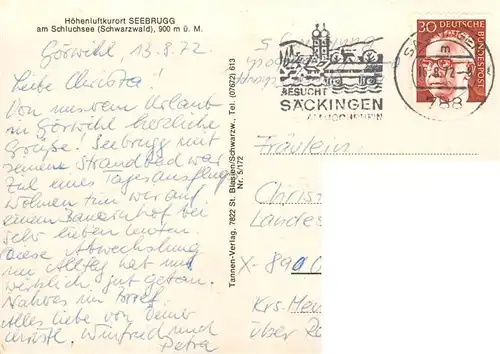 Höhenluftkurort SEEBRUGG
am Schluchsee (Schwarzwald), 900 m ü. M.
Görwihl, 13.8.72
Liebe Christa!
Von unserem Urlaub
in Görwihl herzliche
Grüße. Seebrugg mit
seinem Strandbad war
Ziel eines Tagesausflugs.
Wohnen tun wir auf
einem Bauernhof bei
sehr lieben Leuten.
Diese Abwechslung
im Alltag hat uns
wirklich gut getan.
Näheres im Brief.
Alles Liebe von
Winfried und
Petra
Tannen-Verlag, 7822 St. Blasien/Schwarzw., Tel. (07672) 613
Nr. 5/172
BESUCHT
SÄCKINGEN
AM HOCHRHEIN
30 DEUTSCHE
BUNDESPOST
16.8.72-9
788
Fräulein
Chris
Landes
X-89
Krs-
über